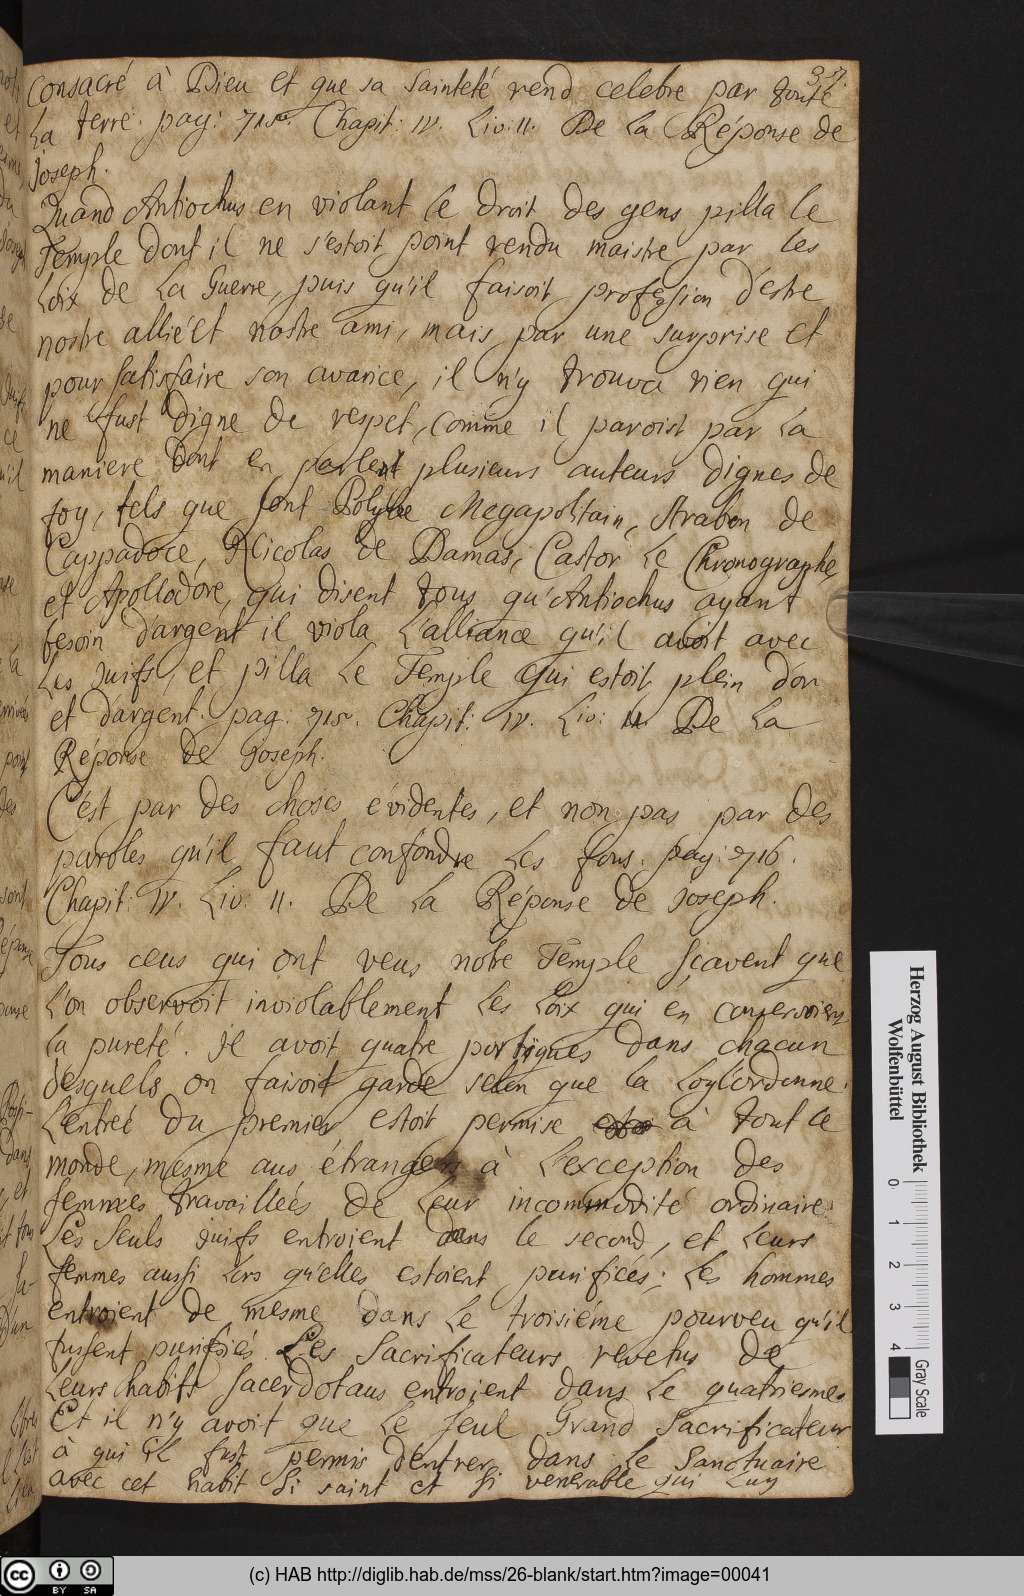 37.
consacré à Dieu et que sa sainteté rend celebre par toute
la terre. pag: 715. Chapit: IV. Liv: II. De la Réponse de
Joseph.
Quand Antiochus en violant le droit des gens pilla le
Temple dont il ne s'estoit point rendu maistre par les
Loix de la Guerre, puis qu'il faisoit profession d'estre
nostre allié et nostre ami, mais par une surprise et
pour satisfaire son avarice, il n'y trouva rien qui
ne fust digne de respet, comme il paroist par la
maniere dont en parlent plusieurs auteurs dignes de
foy, tels que sont Polybe Megapolitain, Strabon de
Cappadoce, Nicolas de Damas, Castor le Chronographe
et Apollodore, qui disent tous qu'Antiochus ayant
besoin d'argent il viola l'alliance qu'il avoit avec
les Juifs, et pilla le Temple qui estoit plein d'or
et d'argent. pag. 715. Chapit: IV. Liv: II. De la
Réponse de Joseph.
C'est par des choses évidentes, et non pas par des
paroles qu'il faut confondre les fous. pag: 716.
Chapit: IV. Liv: II. De la Réponse de Joseph.
Tous ceus qui ont veus notre Temple sçavent que
l'on observoit inviolablement les Loix qui en conservoient
la pureté. Il avoit quatre portiques dans chacun
desquels on faisoit garde selon que la Loy l'ordonne.
L'entreé du premier estoit permise à tout le
monde, mesme aus étrangers à l'exception des
femmes travailleés de leur incommodité ordinaire.
Les seuls Juifs entroient dans le second, et leurs
femmes aussi lors qu'elles estoient purifiées; les hommes
entroient de mesme dans le troisiéme pourveu qu'il
fussent purifiés Les Sacrificateurs revetus de
leurs habits sacerdotaus entroient dans le quatriesme.
Et il n'y avoit que le seul Grand Sacrificateur
à qui il fust permis d'entrer dans le Sanctuaire
avec cet habit si saint et si venerable qui luy
Herzog August Bibliothek
Wolfenbüttel
0 1 2 3 4
Gray Scale
cc BY SA
(c) HAB http://diglib.hab.de/mss/26-blank/start.htm?image=00041